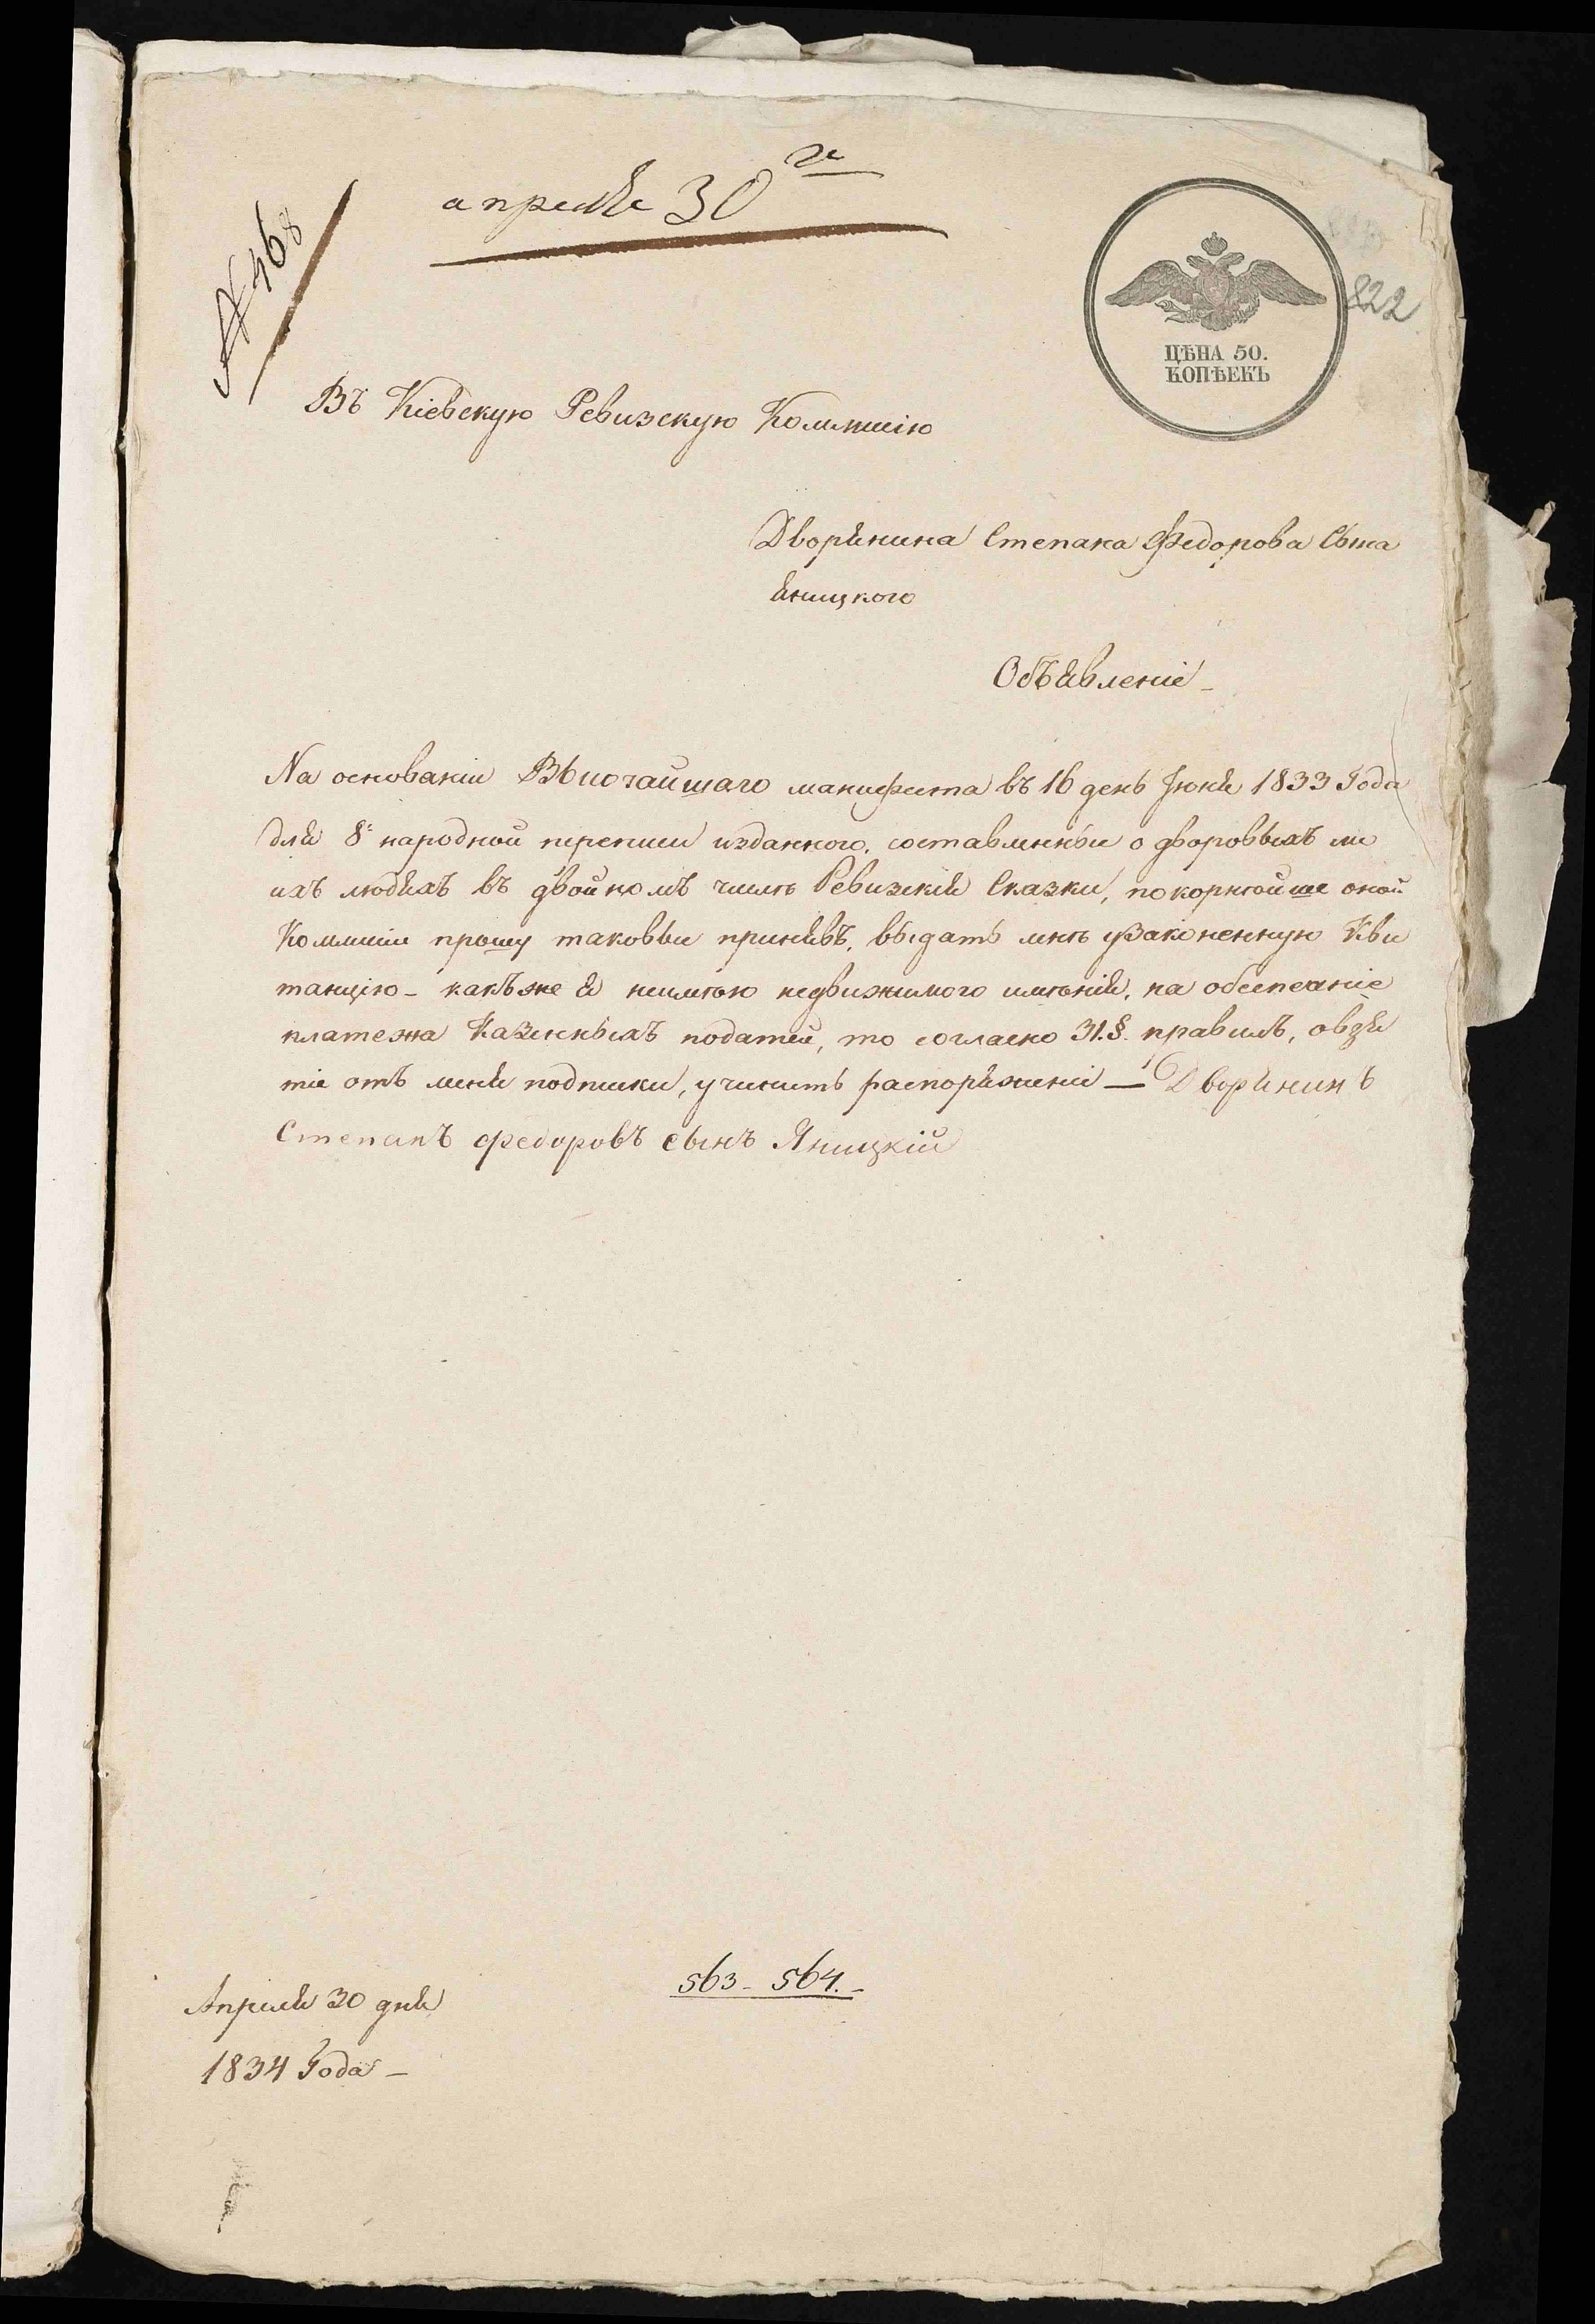 апреля 30го
№ 468
822
ЦѢНА 50.
КОПѢЕКЪ
Въ Кіевскую Ревизскую Коммисію
Дворянина Степана Федорова Сына
Яницкого
Объявленіе
На основаніи Высочайшаго манифеста въ 16 день Іюня 1833 Года
для 8й народной переписи изданного, составленныя о дворовыхъ мо
ихъ людяхъ въ двойномъ числѣ Ревизскія Сказки, покорнѣйше оной
Коммисіи прошу таковыи принявъ, выдать мнѣ узаконенную Кви
танцію - какъ же я неимѣю недвижимого имѣнія, на обеспеченіе
платежа Казенныхъ податей, то согласно 31.§. правилъ, овзя
тіе отъ меня подписки, учинить распоряженіе — Дворянинъ
Степанъ федоровъ сынъ Яницкій
563 - 564. -
Апреля 30 дня
1834 Года -